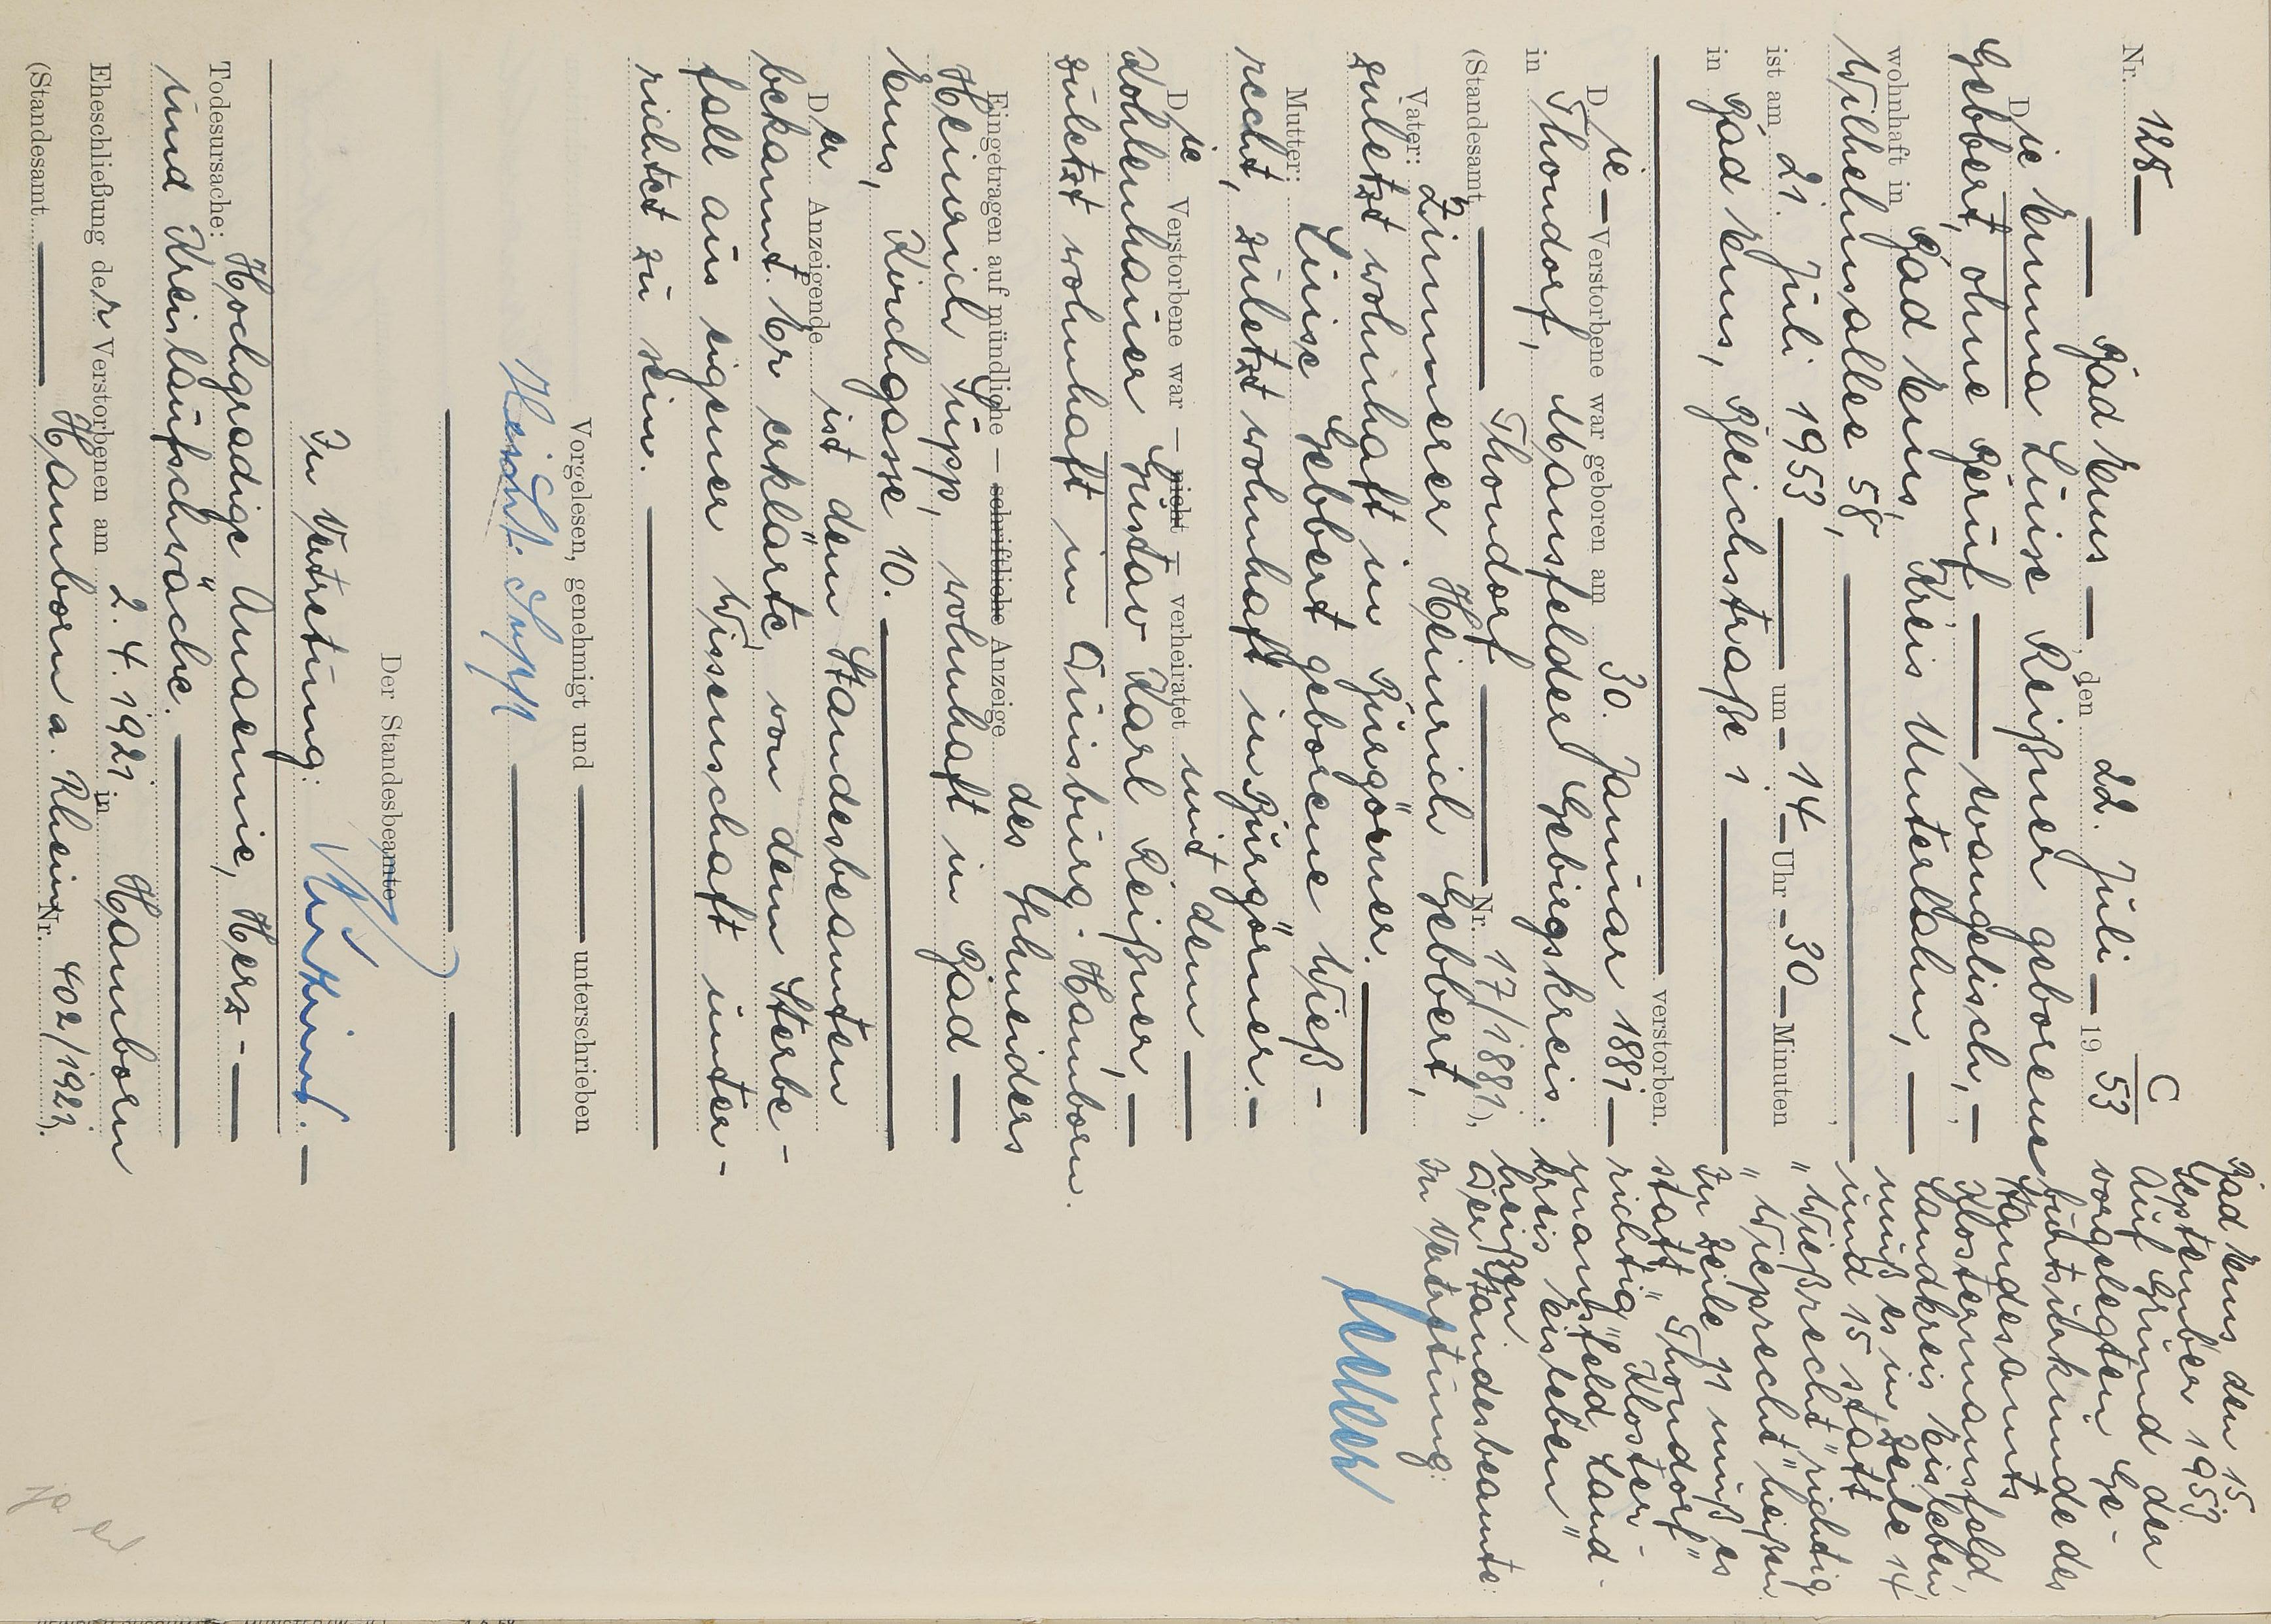 C
Nr. 128
Bad Ems, den 22. Juli 1953
Die Emma Luise Reißner geborene
Gebbert, ohne Beruf evangelisch,
wohnhaft in Bad Ems, Kreis Unterlahn,
Wilhelmsallee 58,
ist am 21. Juli 1953 um 14 Uhr 30 Minuten
in Bad Ems, Bleichstraße 1
verstorben.
Die Verstorbene war geboren am 30. Januar 1881
in Thondorf, Mansfelder Gebirgskreis.
(Standesamt Thondorf Nr. 17/1881),
Vater: Zimmerer Heinrich Gebbert,
zuletzt wohnhaft in Burgörner.
Mutter: Luise Gebbert geborene Wieß-
recht, zuletzt wohnhaft in Burgörner.
Die Verstorbene war — nicht — verheiratet mit dem
Kohlenhauer Gustav Karl Reißner,
zuletzt wohnhaft in Duisburg-Hamborn.
Eingetragen auf mündliche — schriftliche Anzeige des Schneiders
Heinrich Supp, wohnhaft in Bad
Ems, Kirchgasse 10.
Der Anzeigende ist dem Standesbeamten
bekannt. Er erklärte, von dem Sterbe-
fall aus eigener Wissenschaft unter-
richtet zu sein.
Vorgelesen, genehmigt und unterschrieben
Heinr. Supp
Der Standesbeamte
In Vertretung:
Todesursache: Hochgradige Anaemie, Herz-
und Kreislaufschwäche.
Eheschließung der Verstorbenen am 2. 4. 1921 in Hamborn
(Standesamt Hamborn a. Rhein Nr. 402/1921).
Bad Ems den 15
September 1953
Auf Grund der
vorgelegten Ge-
burtsurkunde des
Standesamts
Klostermansfeld,
Landkreis Eisleben,
muß es in Zeile 14
und 15 statt
"Wießrecht" richtig
"Wieprecht" heißen
In Zeile 11 muß es
statt "Thondorf"
richtig "Kloster-
mansfeld Land-
kreis Eisleben"
heißen.
Der Standesbeamte:
In Vertretung: